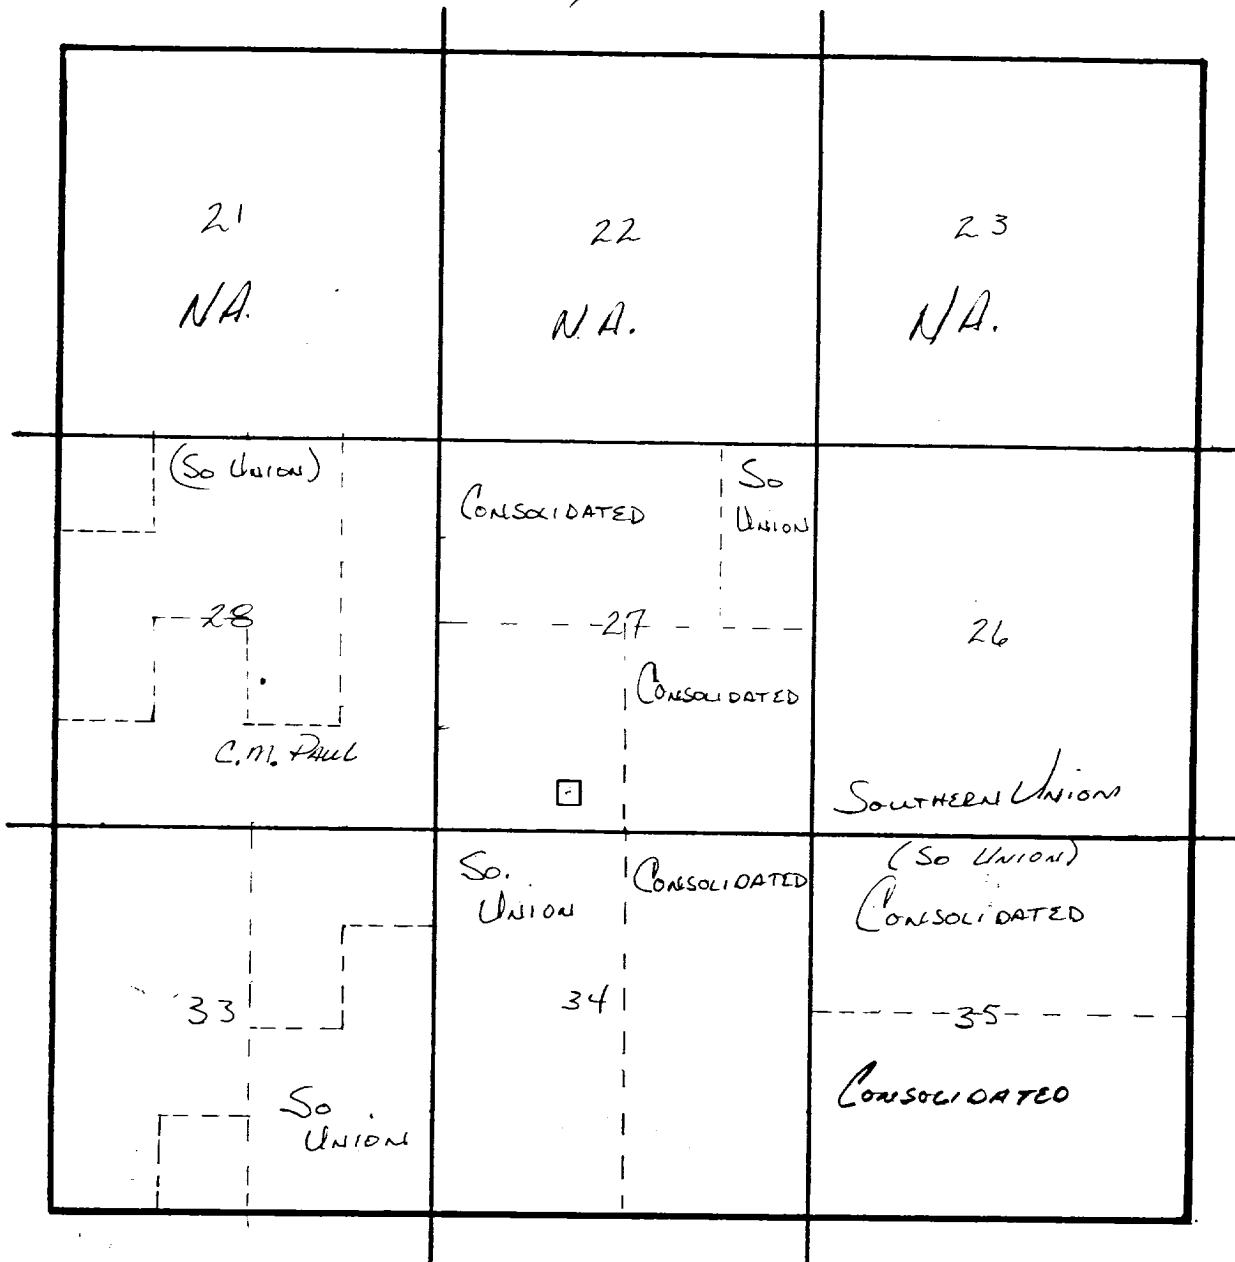 21
N.A.
22
N.A.
23
N.A.
(So Union)
28
C.M. Paul
Consolidated
So
Union
27
Consolidated
26
Southern Union
33
So
Union
So.
Union
Consolidated
34
(So Union)
Consolidated
35
Consolidated